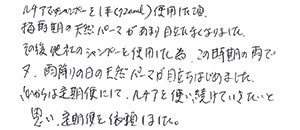 ルチアでシャンプーを1本(922ml)使用した頃、
梅雨期の天然パーマがあまり目立たなくなりました。
その後他社のシャンプーを使用した為、この時期の雨で
又、雨降りの日の天然パーマが目立ちはじめました。
これからは定期便にて、ルチアを使い続けていきたいと
思い、定期便を依頼しました。